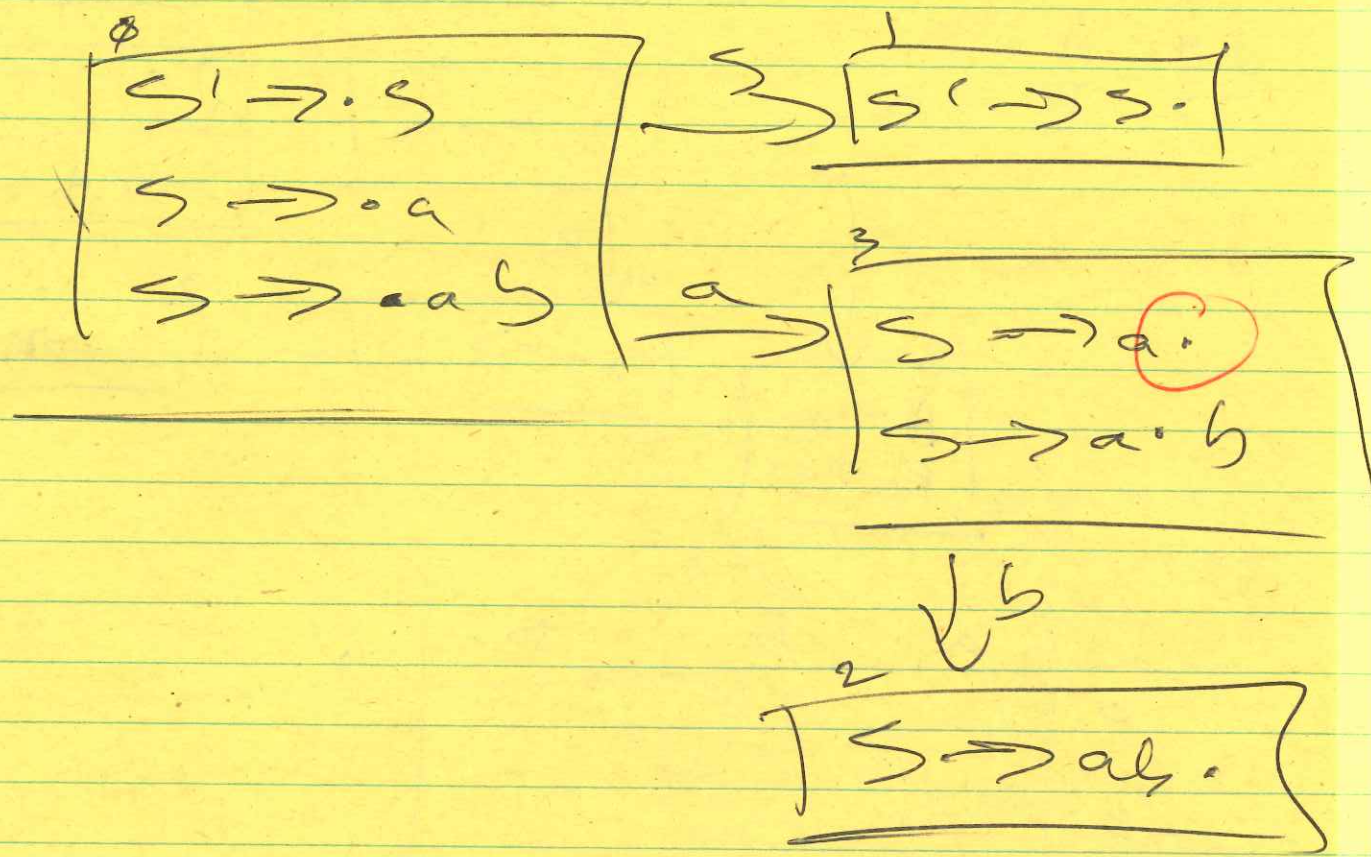 0
S' → · S
S → · a
S → · a b
S
1
S' → S ·
a
3
S → a ·
S → a · b
b
2
S → ab ·